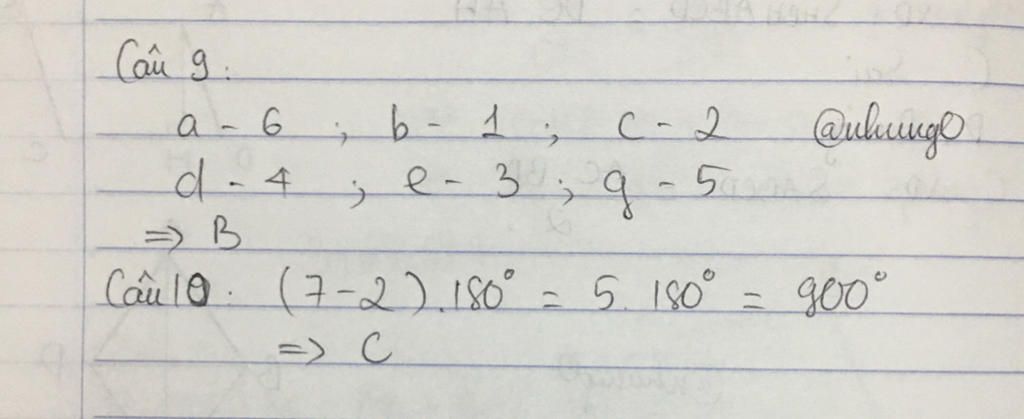 Câu 9:
a - 6 ; b - 1 ; c - 2 @nhung0
d - 4 ; e - 3 ; g - 5
=> B
Câu 10: (7 - 2).180° = 5.180° = 900°
=> C